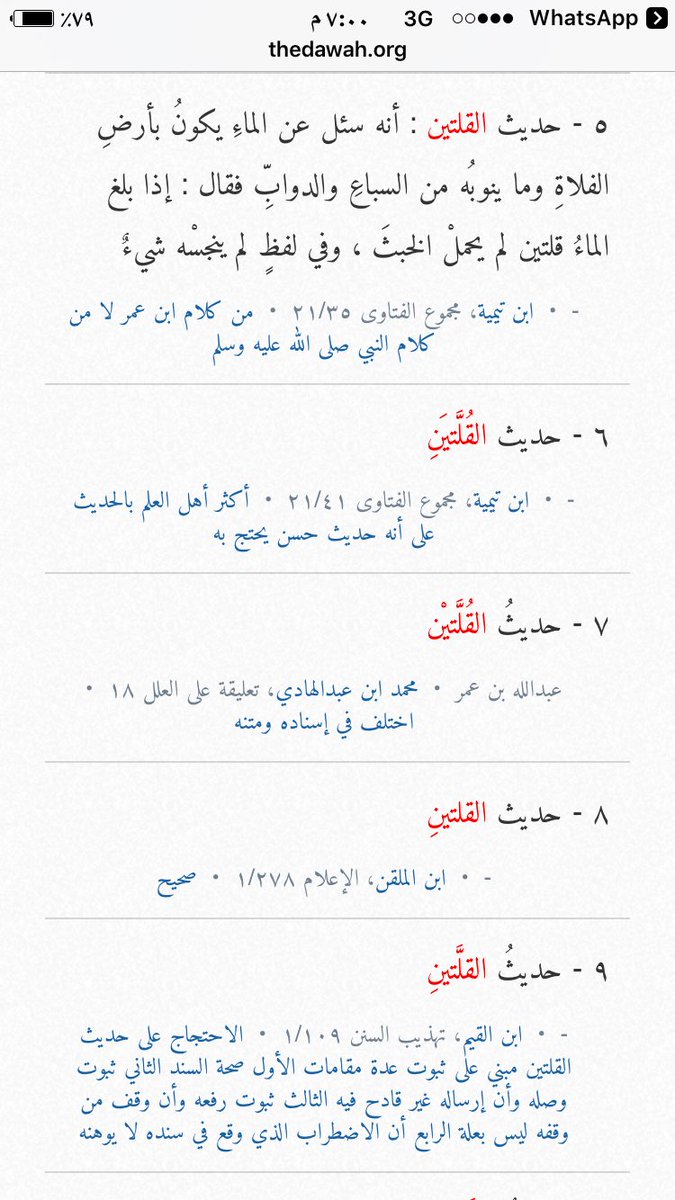 ٪٧٩ ٧:٠٠ م 3G WhatsApp
thedawah.org
٥ - حديث القلتين : أنه سئل عن الماءِ يكونُ بأرضِ
الفلاةِ وما ينوبُه من السباعِ والدوابِّ فقال : إذا بلغ
الماءُ قلتين لم يحملْ الخبثَ ، وفي لفظٍ لم ينجسْه شيءٌ
- • ابن تيمية، مجموع الفتاوى ٢١/٣٥ • من كلام ابن عمر لا من
كلام النبي صلى الله عليه وسلم
٦ - حديث القُلَّتيَنِ
- • ابن تيمية، مجموع الفتاوى ٢١/٤١ • أكثر أهل العلم بالحديث
على أنه حديث حسن يحتج به
٧ - حديثُ القُلَّتيْن
عبدالله بن عمر • محمد ابن عبدالهادي، تعليقة على العلل ١٨ •
اختلف في إسناده ومتنه
٨ - حديث القلتينِ
- • ابن الملقن، الإعلام ١/٢٧٨ • صحيح
٩ - حديثُ القلَّتينِ
- • ابن القيم، تهذيب السنن ١/١٠٩ • الاحتجاج على حديث
القلتين مبني على ثبوت عدة مقامات الأول صحة السند الثاني ثبوت
وصله وأن إرساله غير قادح فيه الثالث ثبوت رفعه وأن وقف من
وقفه ليس بعلة الرابع أن الاضطراب الذي وقع في سنده لا يوهنه